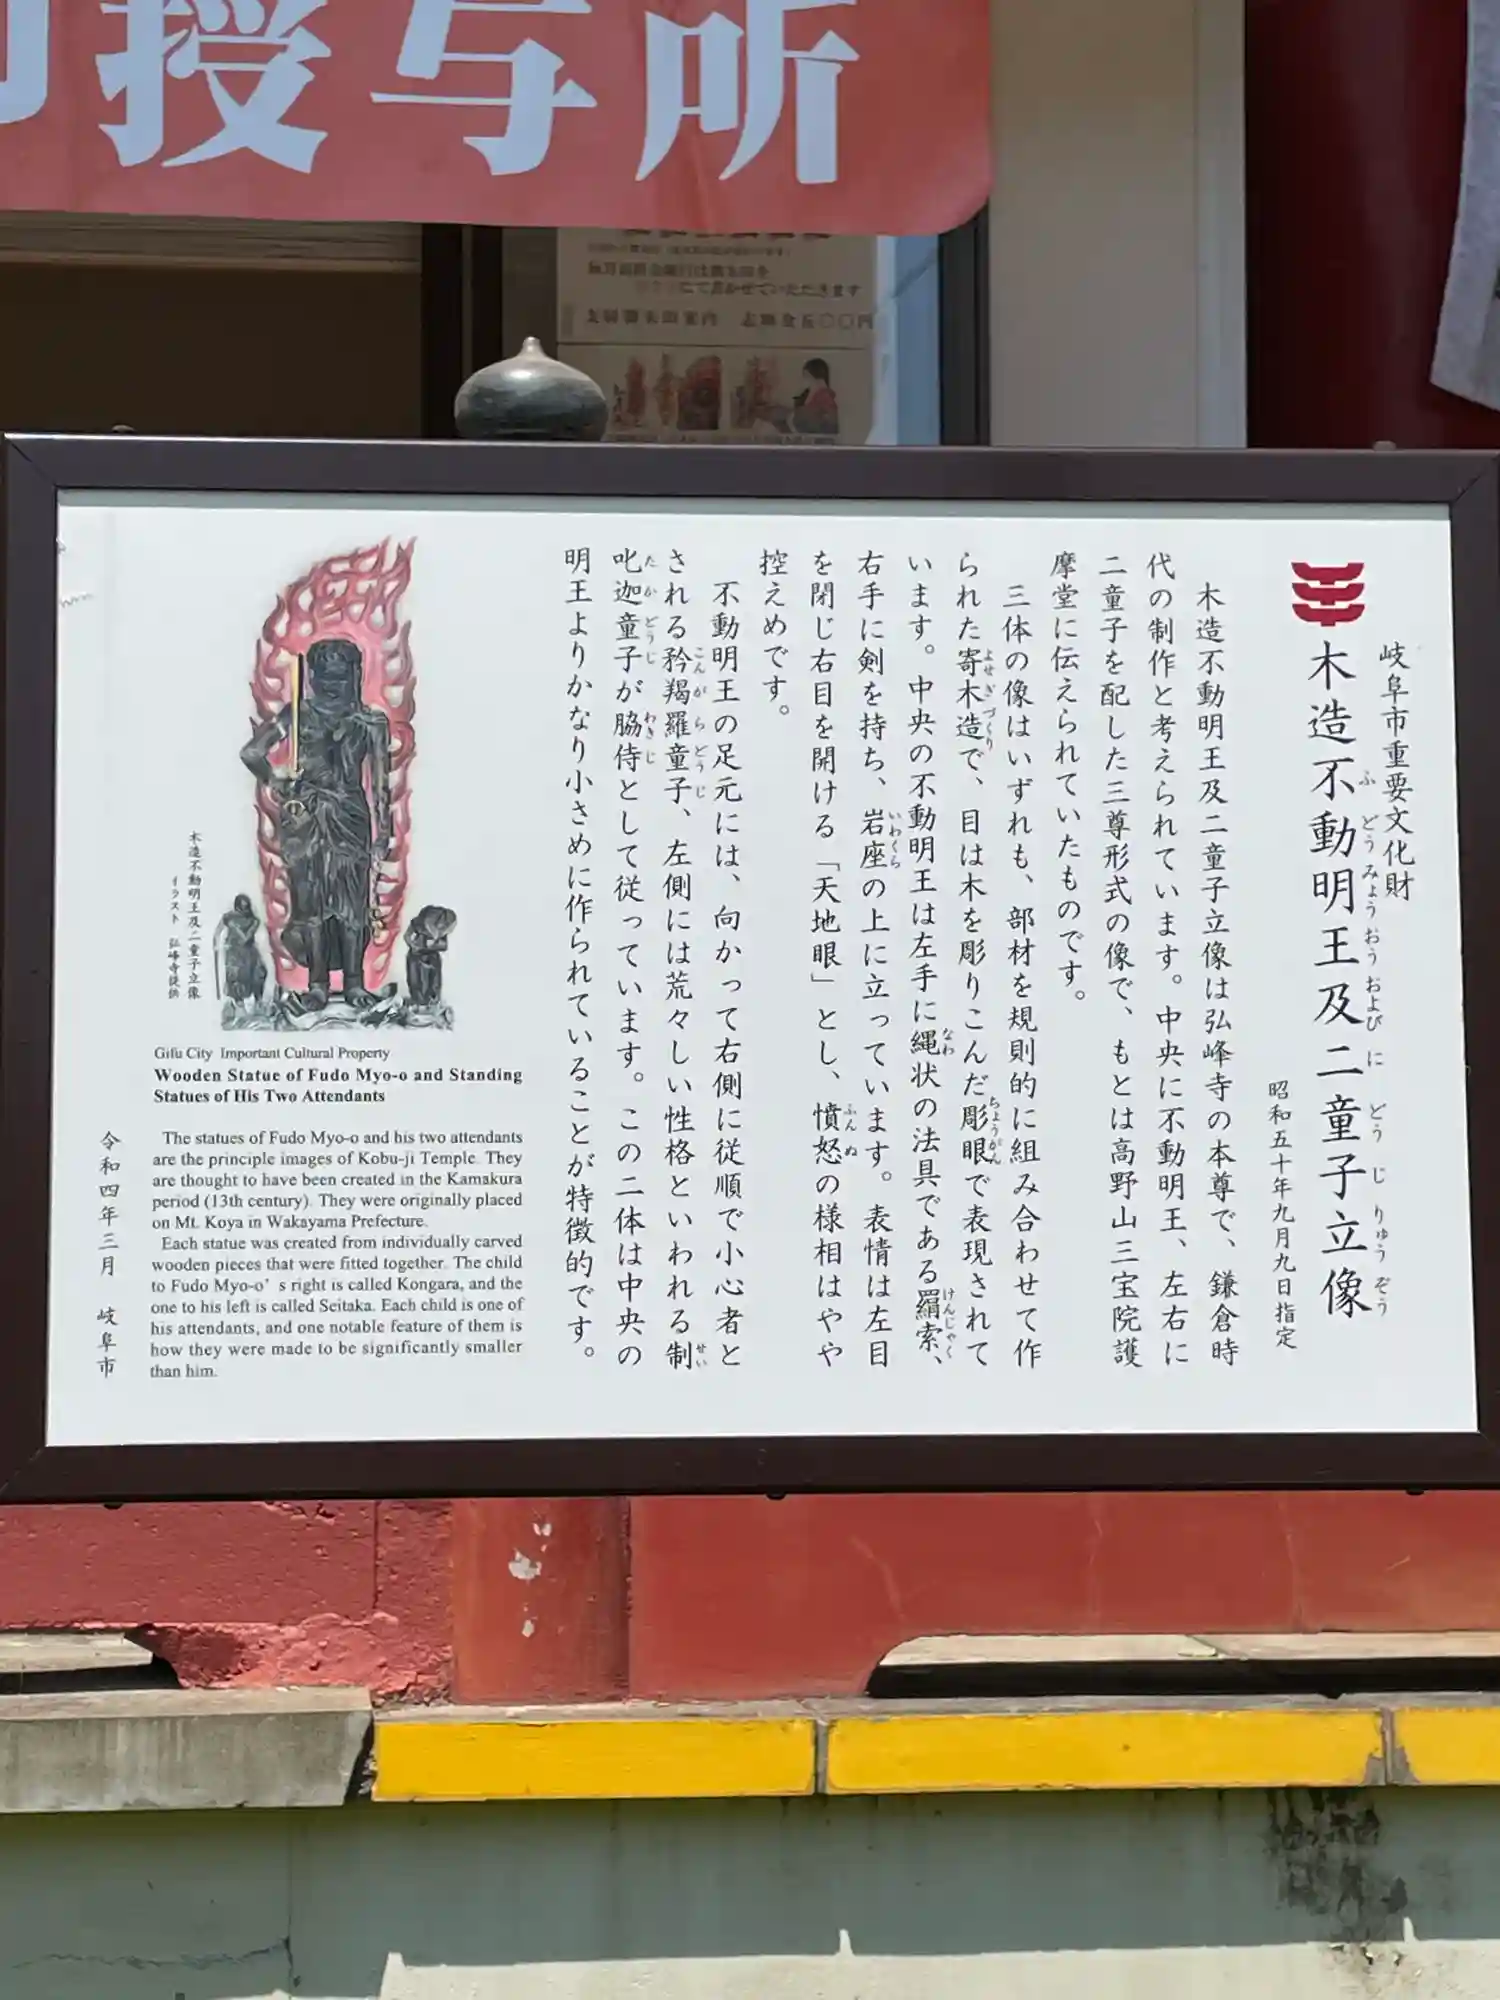 授写所
岐阜市重要文化財
木造不動明王及二童子立像
ふどうみょうおうおよびにどうじりゅうぞう
昭和五十年九月九日指定
木造不動明王及二童子立像は弘峰寺の本尊で、鎌倉時
代の制作と考えられています。中央に不動明王、左右に
二童子を配した三尊形式の像で、もとは高野山三宝院護
摩堂に伝えられていたものです。
三体の像はいずれも、部材を規則的に組み合わせて作
られた寄木造で、目は木を彫りこんだ彫眼で表現されて
よせぎづくり
ちょうがん
います。中央の不動明王は左手に縄状の法具である羂索、
なわ
けんじゃく
右手に剣を持ち、岩座の上に立っています。表情は左目
いわくら
を閉じ右目を開ける「天地眼」とし、憤怒の様相はやや
ふんぬ
控えめです。
不動明王の足元には、向かって右側に従順で小心者と
される矜羯羅童子、左側には荒々しい性格といわれる制
こんがらどうじ
せい
叱迦童子が脇侍として従っています。この二体は中央の
たかどうじ
わきじ
明王よりかなり小さめに作られていることが特徴的です。
木造不動明王及二童子立像
イラスト 弘峰寺提供
Gifu City Important Cultural Property
Wooden Statue of Fudo Myo-o and Standing
Statues of His Two Attendants
The statues of Fudo Myo-o and his two attendants
are the principle images of Kobu-ji Temple. They
are thought to have been created in the Kamakura
period (13th century). They were originally placed
on Mt. Koya in Wakayama Prefecture.
Each statue was created from individually carved
wooden pieces that were fitted together. The child
to Fudo Myo-o's right is called Kongara, and the
one to his left is called Seitaka. Each child is one of
his attendants, and one notable feature of them is
how they were made to be significantly smaller
than him.
令和四年三月 岐阜市